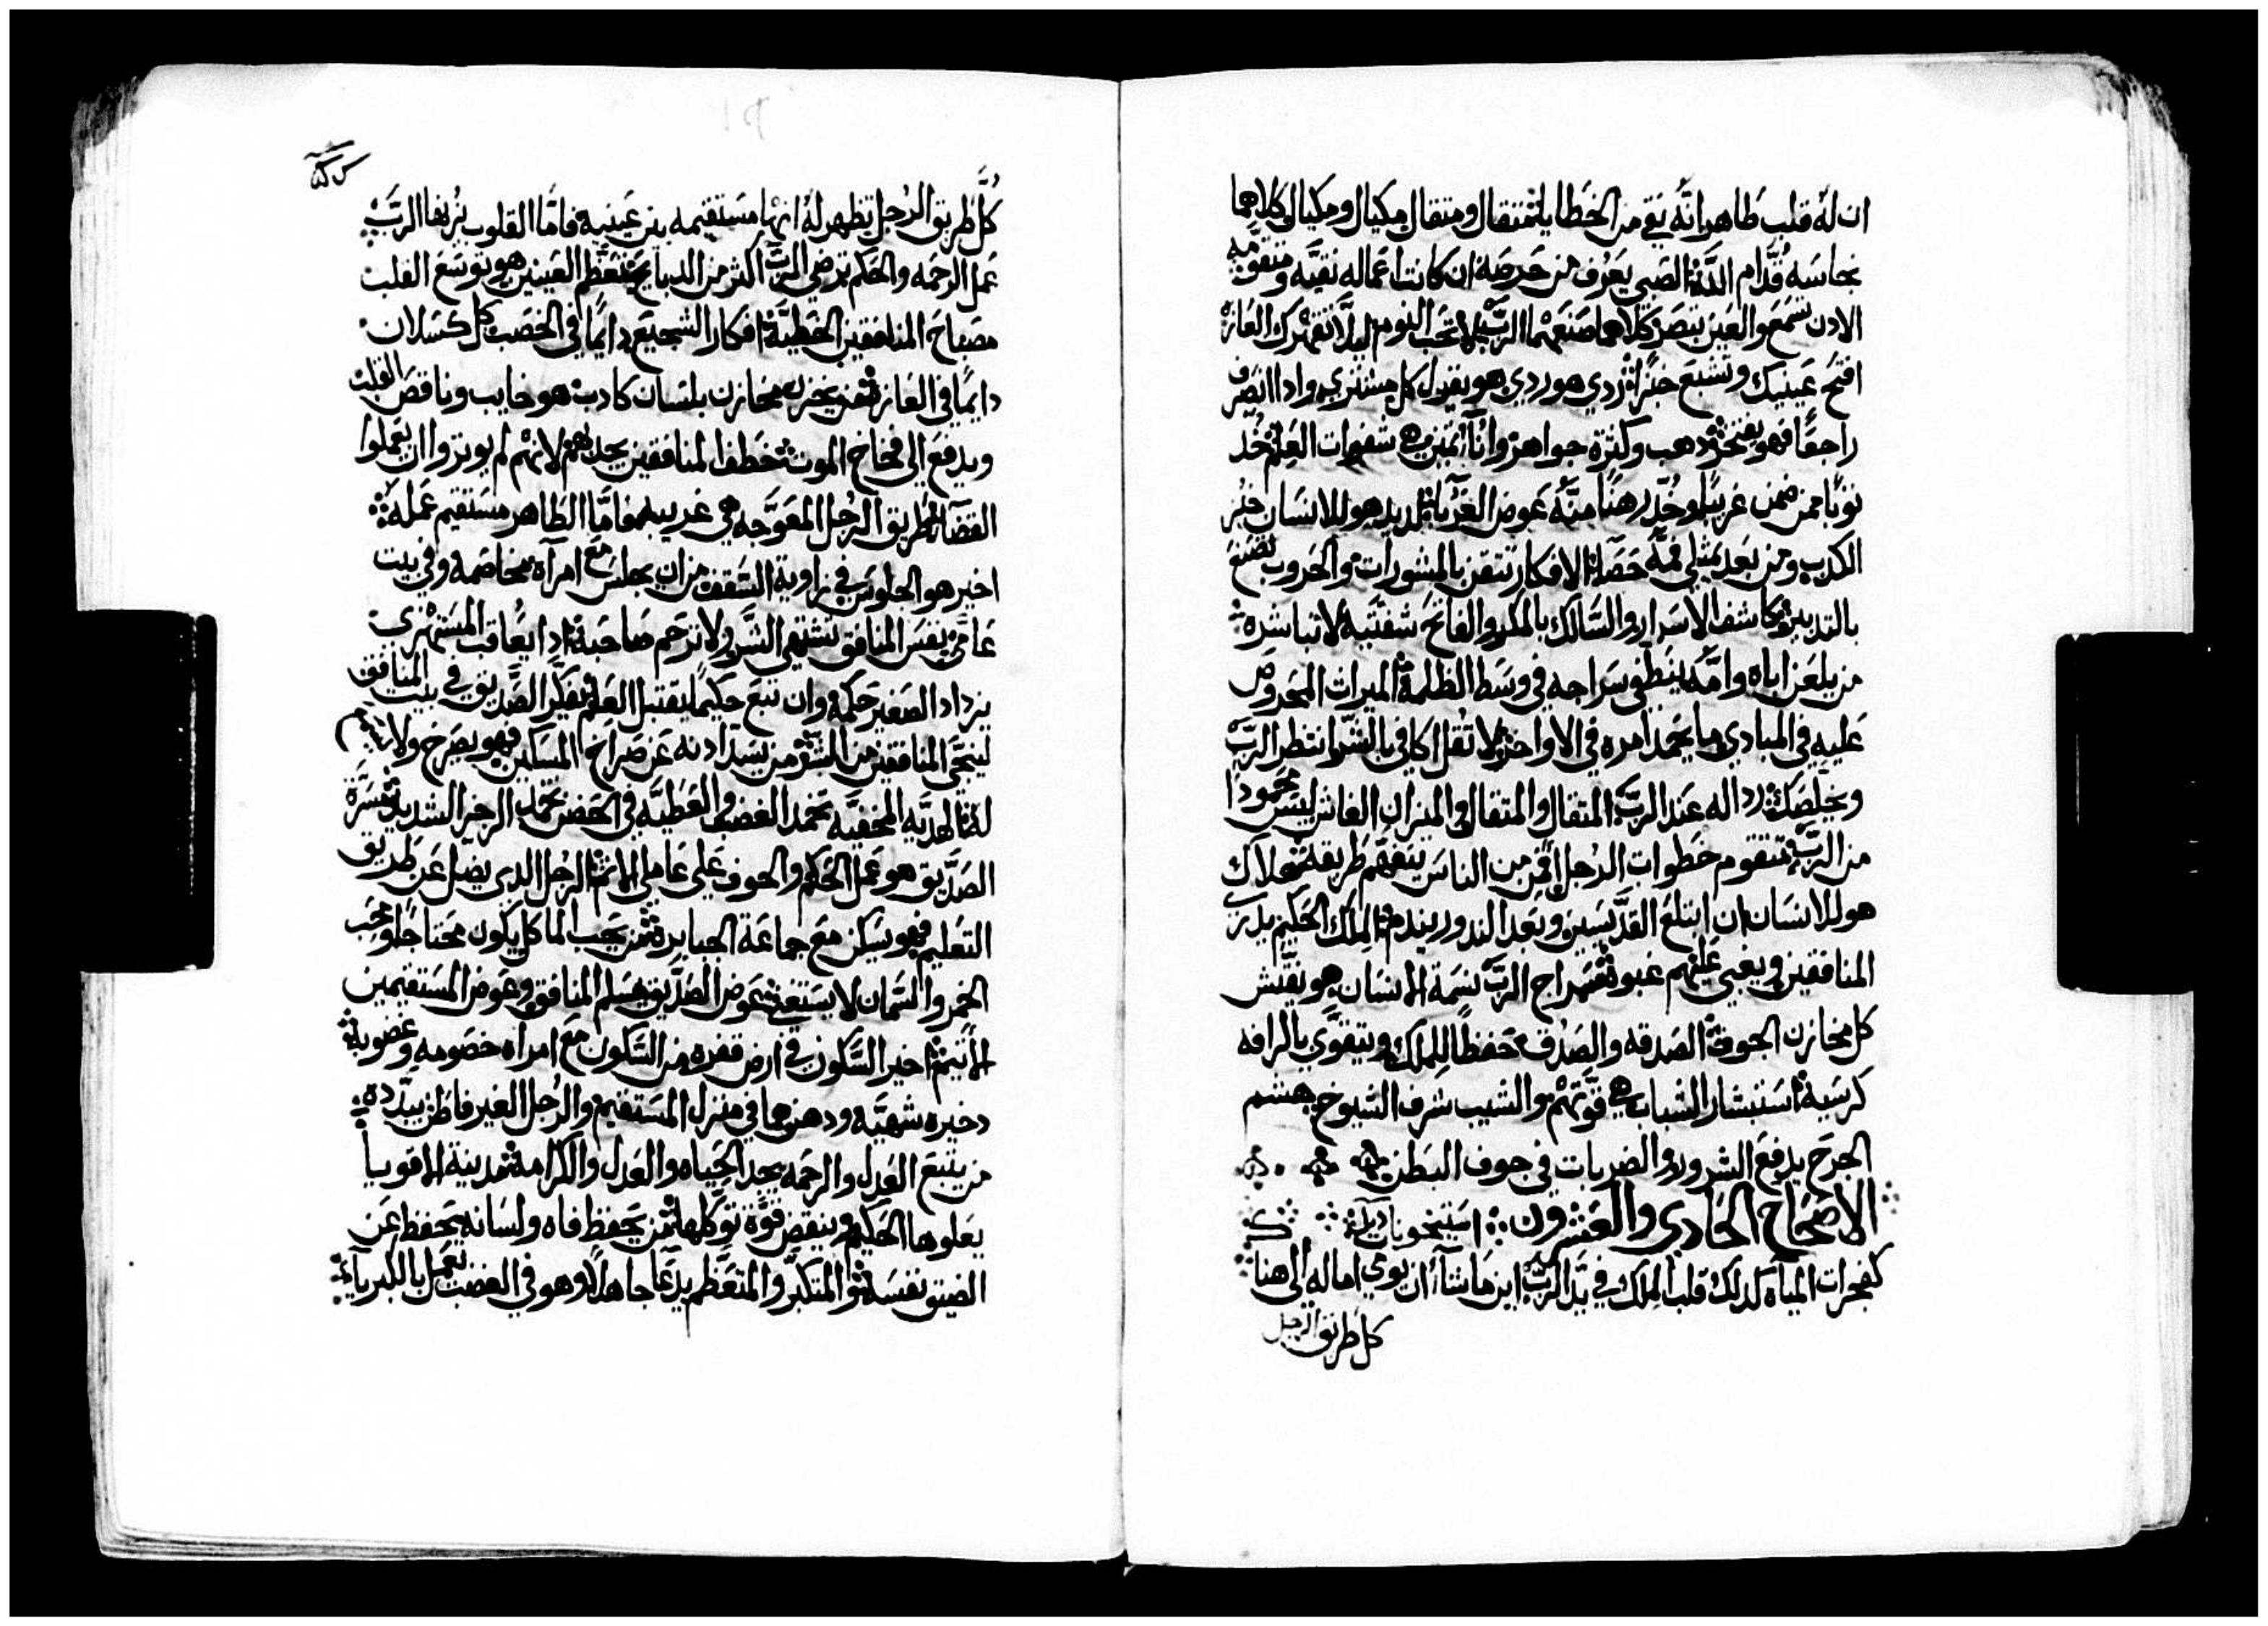 ان له قلب طاهر انه نقي من الخطايا مثقال ومثقال مكيال ومكيال وكلاهما
نجاسه قدام الله الصبي يعرف من حرصه ان كانت اعماله نقيه ومتقومه
الادن تسمع والعين تبصر كلاهما صنعهما الرب لا تحب النوم ليلا تقهرك العازه
افتح عينيك وتشبع خبزا ردي هو ردي هو يقول كل مشتري وادا انصرف
راجعا فهو يفتخر دهب وكثرة جواهر واناء ثمين هي شفوات العلم خد
ثوبا ممن ضمن غريبا وخد رهنا منه عوض الغرباء لديد هو للانسان خبز
الكدب ومن بعد يمتلي فمه حصاه الافكار تتقن بالمشورات والحروب تصنع
بالتدبير كاشف الاسرار والسالك بالمكر والفاتح شفتيه لا تباشره
من يلعن اباه وامه ينطفي سراجه في وسط الظلمة الميراث المحروص
عليه في المبادي ما يحمد امره في الاواخر لا تقل اكافي بالشر انتظر الرب
ويخلصك رداله عند الرب المثقال والمثقال والميزان الغاش ليس محمودا
من الرب تتقوم خطوات الرجل فمن من الناس يتفهم طريقه هلاك
هو للانسان ان ابتلع القديسين وبعد الندور يندم الملك الحكيم يدري
المنافقين ويعبي عليهم غبوه سراج الرب نسمة الانسان هو يفتش
كل مخازن الجوف الصدقه والصدق تحفظا للملك ويتقوي بالرافه
كرسيه استبشار الشباب هي قوتهم والشيب شرف الشيوخ هشم
الجرح يدفع الشرور والضربات في جوف البطن
الاصحاح الحادي والعشرون
كفجرات المياه كدلك قلب الملك في يد الرب اين ما شاء ان يوي اماله الي هنا
كل طريق الرجل
كل طريق الرجل تظهر له انها مستقيمه بين عينيه فاما القلوب يزنها الرب
عمل الرحمه والحكم ترضي الرب اكثر من الدبايح تعظم العينين هو توسع القلب
مصباح المنافقين الخطية افكار الشجيع دايما في الخصب كل كسلان
دايما في العازه من يخزن مخازن بلسان كادب هو خايب وناقص القلب
ويدفع الي فخاخ الموت خطف المنافقين يجدبهم لانهم لم يوثروا ان يعملوا
القضاء طريق الرجل المعوجه هي غريبه فاما الطاهر مستقيم عمله
اخير هو الجلوس في زاوية السقف من ان يجلس مع امراه مخاصمه وفي بيت
عامر نفس المنافق تشتهي الشر ولا ترحم صاحبه ادا يعاقب المستهزي
يزداد الصغير حكمه وان تبع حكيما يقتبل العلم يفكر الصديق في بيت المنافق
لينجي المنافقين من الشر من يسد ادنه عن صراخ المسكين فهو يصرخ ولا
له الهديه المخفيه تخمد الغضب والعطيه في الحضن تخمد الرجز الشديد مسرة
الصديق هو عمل الحكم والخوف علي عاملي الاثم الرجل الدي يضل عن طريق
التعليم فهو يسكن مع جماعة الجبابره من يحب الماكل يكون محتاجا ومحب
الخمر والسمان لا يستغني عوض الصديق يسلم المنافق وعوض المستقيمين
الاثيم اخير السكون في ارض قفره من السكون مع امراه خصومه وغضوبة
دخيره شهيه ودهن هما في منزل المستقيم والرجل الغير فاطن يبدده
من يتبع العدل والرحمه يجد الحياه والعدل والكرامة مدينة الاقويا
يعلوها الحكيم وينقض قوة توكلها من يحفظ فاه ولسانه يحفظ عن
الضيق نفسه المتكبر والمتعظم يدعا جاهلا وهو في الغضب يعمل بالكبرياء